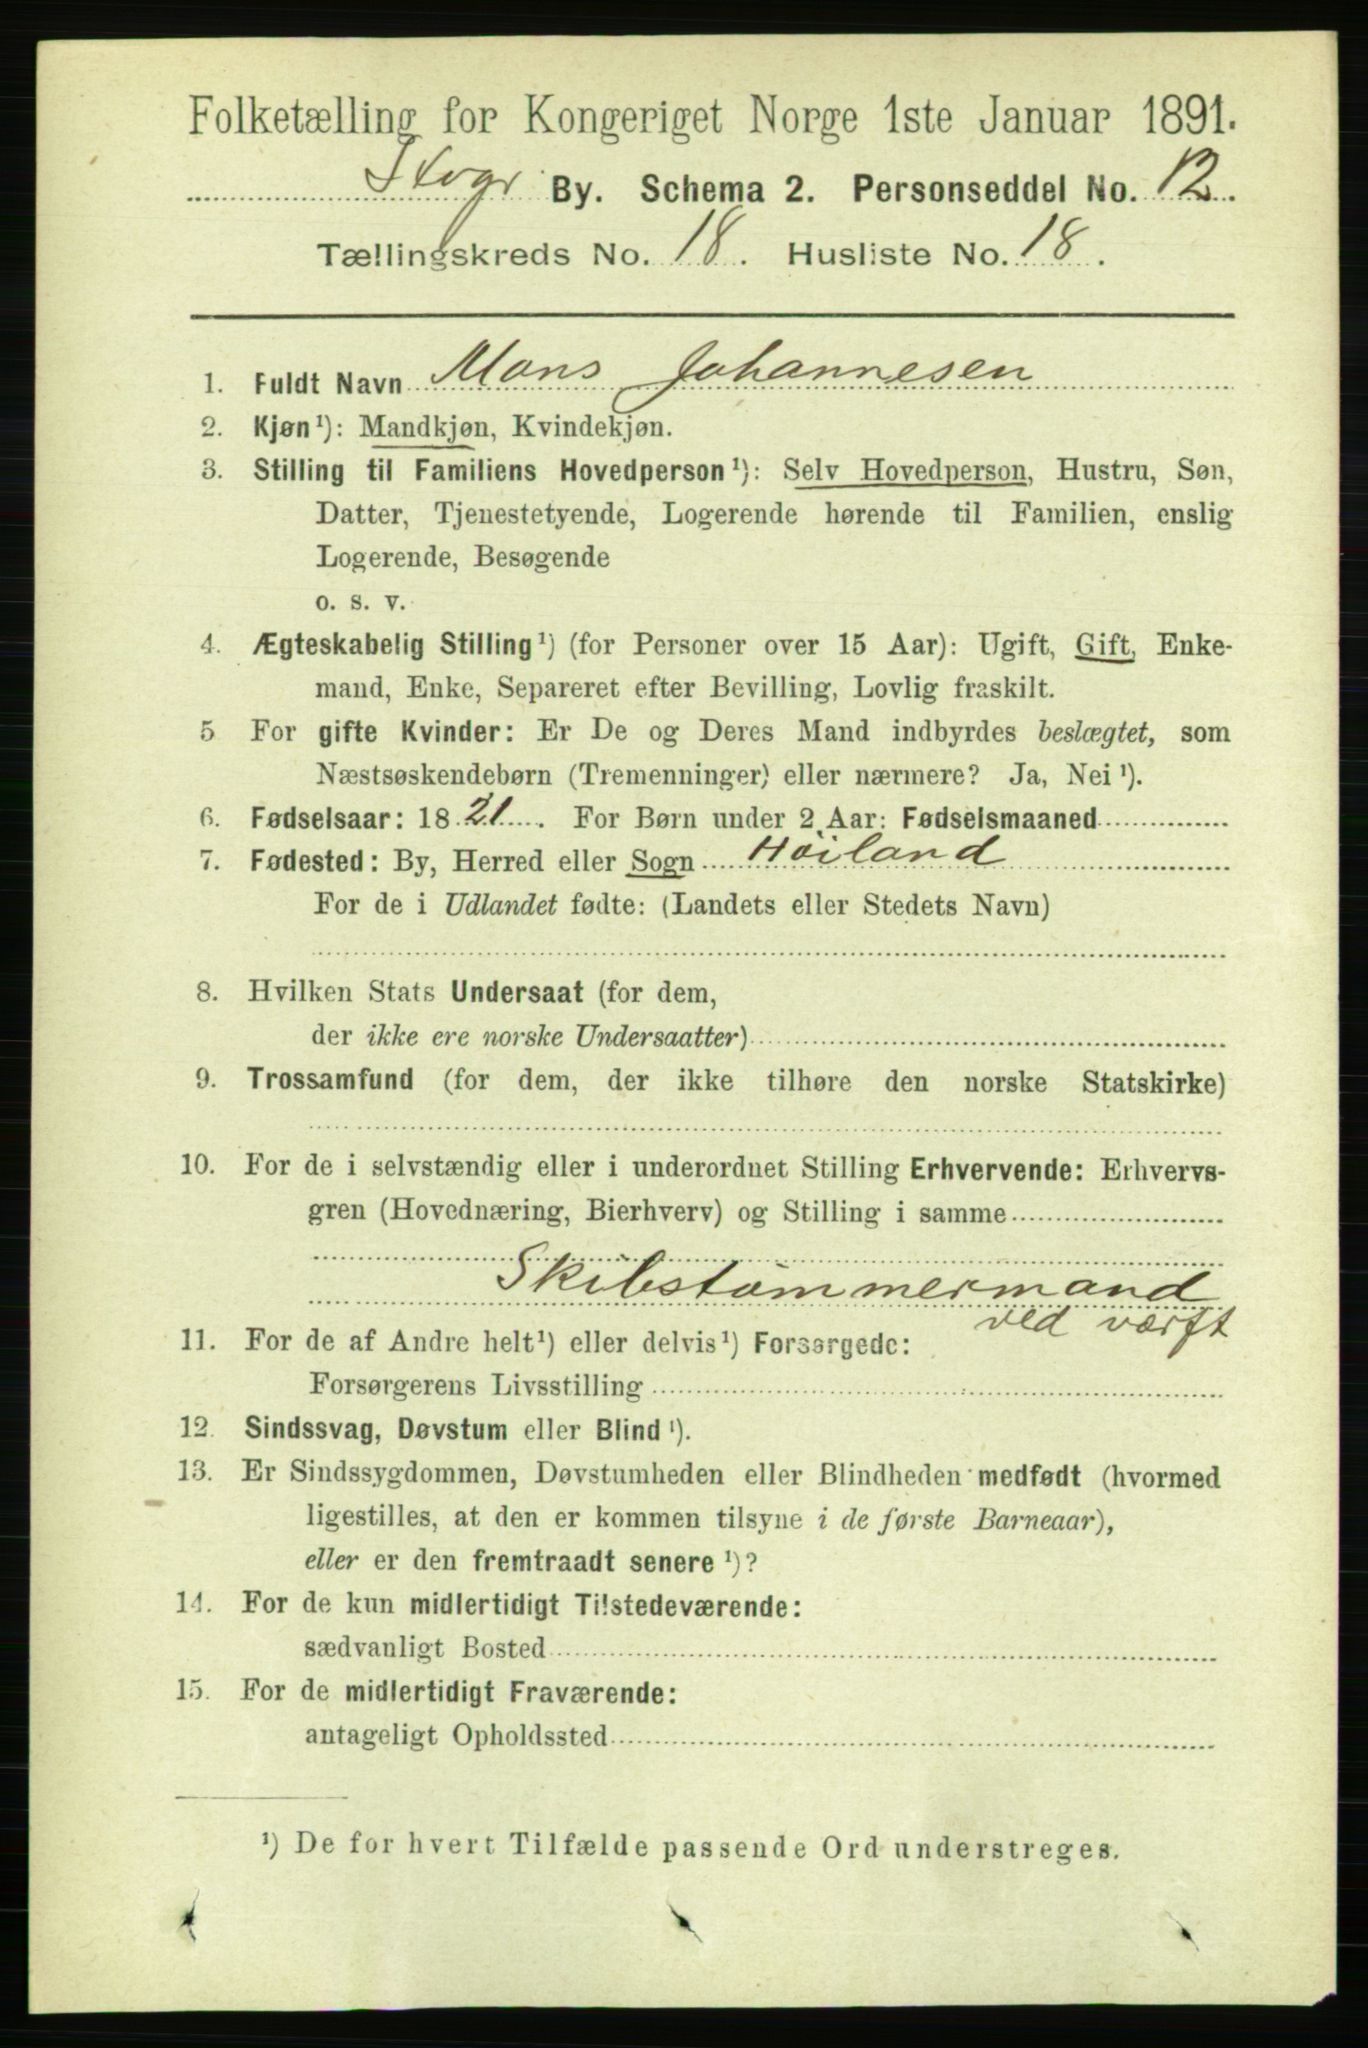 Folketælling for Kongeriget Norge 1ste Januar 1891.
Stvgr By. Schema 2. Personseddel No. 12.
Tællingskreds No. 18. Husliste No. 18.
1. Fuldt Navn Mons Johannesen
2. Kjøn¹): Mandkjøn, Kvindekjøn.
3. Stilling til Familiens Hovedperson¹): Selv Hovedperson, Hustru, Søn,
Datter, Tjenestetyende, Logerende hørende til Familien, enslig
Logerende, Besøgende
o. s. v.
4. Ægteskabelig Stilling¹) (for Personer over 15 Aar): Ugift, Gift, Enke-
mand, Enke, Separeret efter Bevilling, Lovlig fraskilt.
5 For gifte Kvinder: Er De og Deres Mand indbyrdes beslægtet, som
Næstsøskendebørn (Tremenninger) eller nærmere? Ja, Nei¹).
6. Fødselsaar: 1821. For Børn under 2 Aar: Fødselsmaaned
7. Fødested: By, Herred eller Sogn Höiland
For de i Udlandet fødte: (Landets eller Stedets Navn)
8. Hvilken Stats Undersaat (for dem,
der ikke ere norske Undersaatter)
9. Trossamfund (for dem, der ikke tilhøre den norske Statskirke)
10. For de i selvstændig eller i underordnet Stilling Erhvervende: Erhvervs-
gren (Hovednæring, Bierhverv) og Stilling i samme
Skibstömmermand
ved værft
11. For de af Andre helt¹) eller delvis¹) Forsørgede:
Forsørgerens Livsstilling
12. Sindssvag, Døvstum eller Blind¹).
13. Er Sindssygdommen, Døvstumheden eller Blindheden medfødt (hvormed
ligestilles, at den er kommen tilsyne i de første Barneaar),
eller er den fremtraadt senere¹)?
14. For de kun midlertidigt Tilstedeværende:
sædvanligt Bosted
15. For de midlertidigt Fraværende:
antageligt Opholdssted
¹) De for hvert Tilfælde passende Ord understreges.